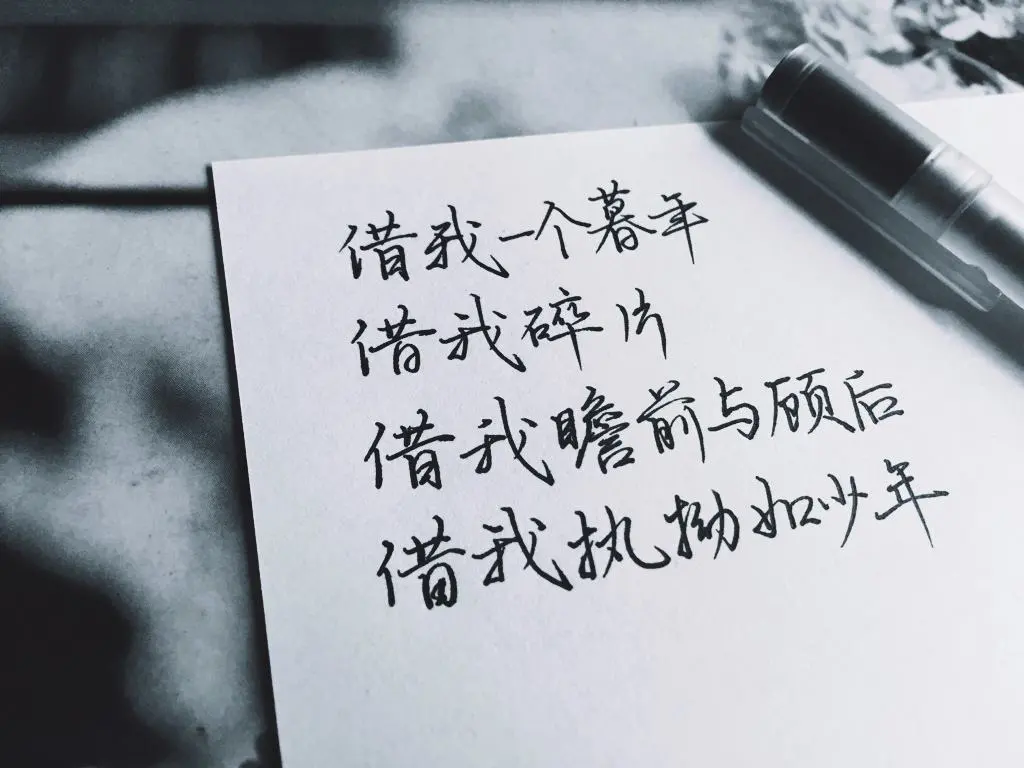 借我一个暮年
借我碎片
借我瞻前与顾后
借我执拗如少年